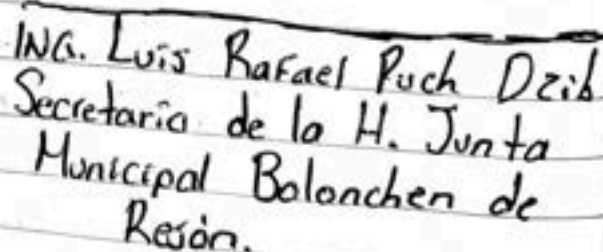 ING. Luis Rafael Puch Dzib
Secretario de la H. Junta
Municipal Bolonchen de
Rejón.